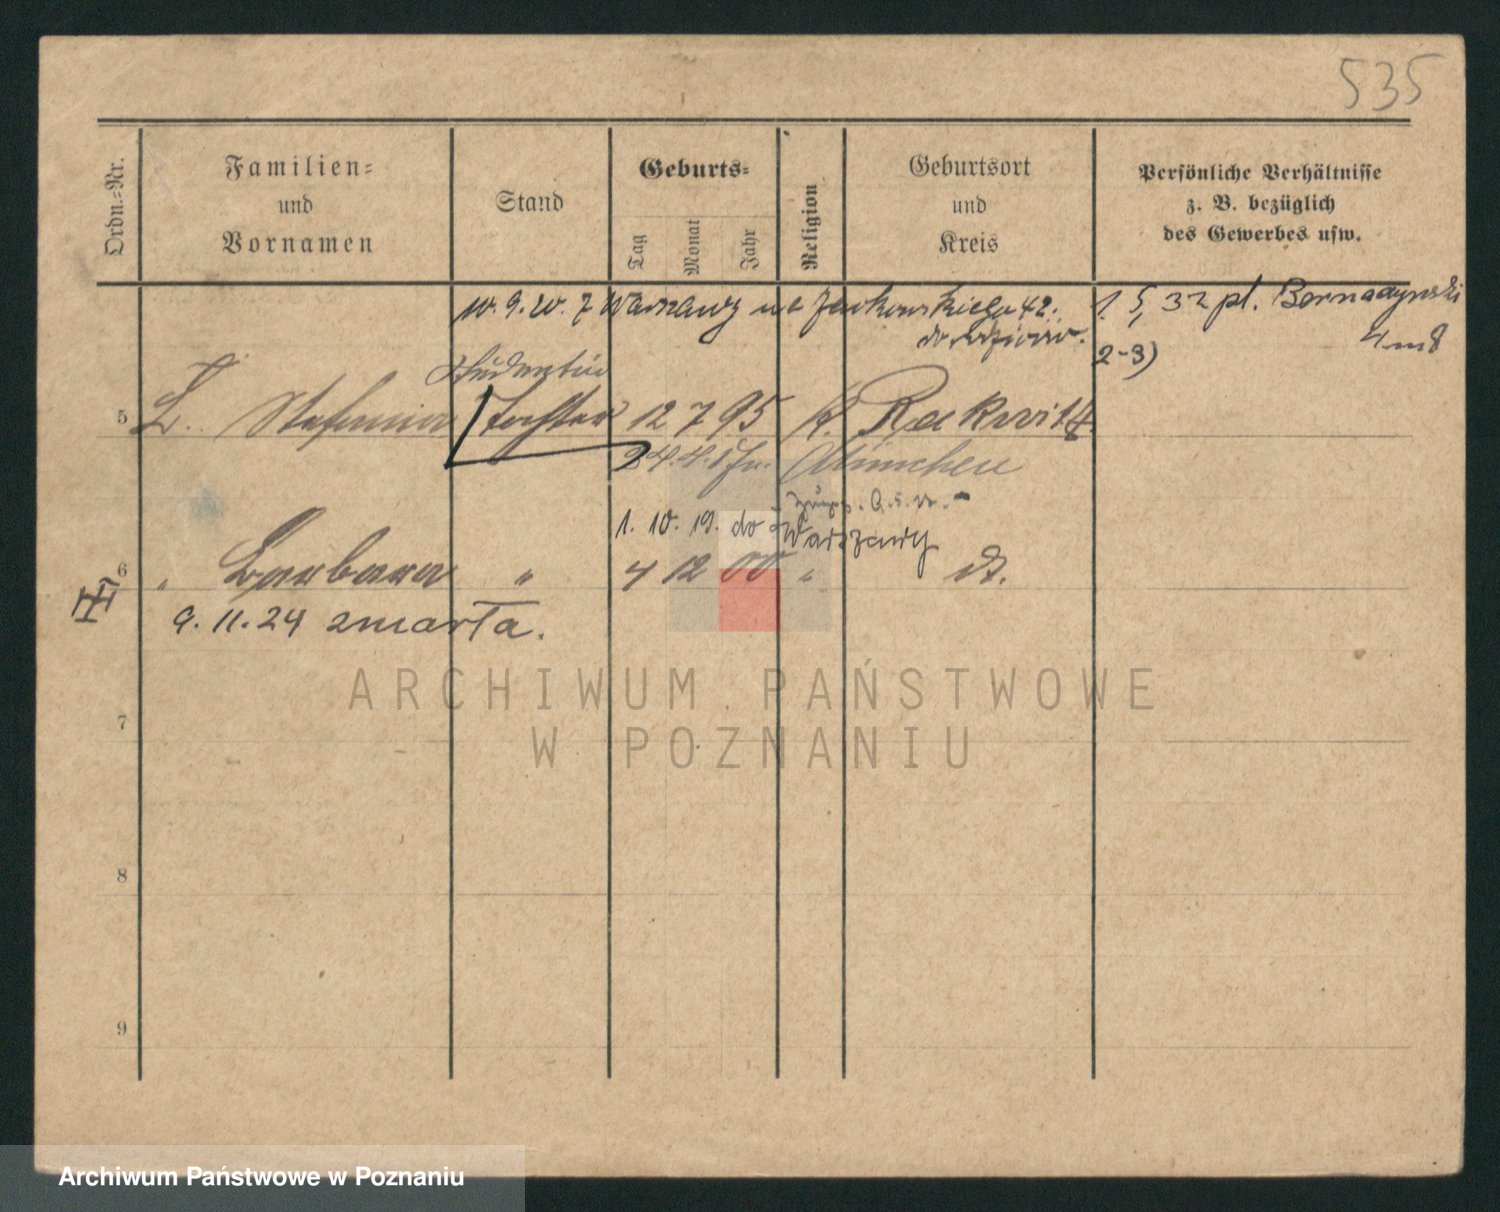 535
Ordn.-Nr.
Familien-
und
Vornamen
Stand
Geburts-
Tag
Monat
Jahr
Religion
Geburtsort
und
Kreis
Persönliche Verhältnisse
z. B. bezüglich
des Gewerbes usw.
10. 9. 20. z Warszawy na 42.
1. 5, 32 pl. Bernadyński
4 m 8
2-3)
Studentin
5 Stefania Tochter 12 7 95 k. Rackwitz
24. 4. München
1. 10. 19. do Warszawy
6 " Barbara " 4 12 00 " dt.
9. 11. 24 zmarła.
7
8
9
ARCHIWUM PAŃSTWOWE
W POZNANIU
Archiwum Państwowe w Poznaniu